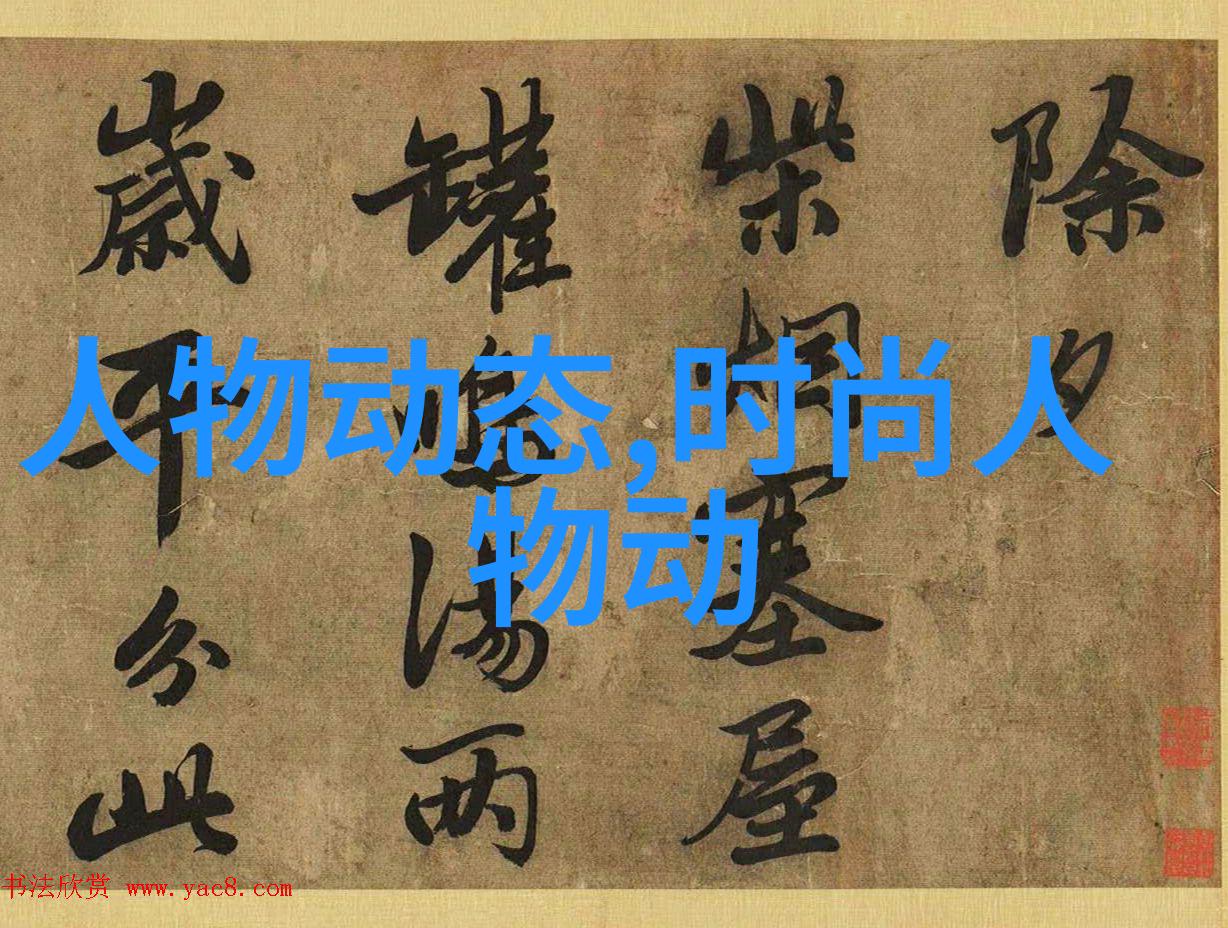 除夕
柴烟塞屋
罐鳴湯兩
歲平分此
人物动态,时尚人
物动
书法欣赏 www.yac8.com